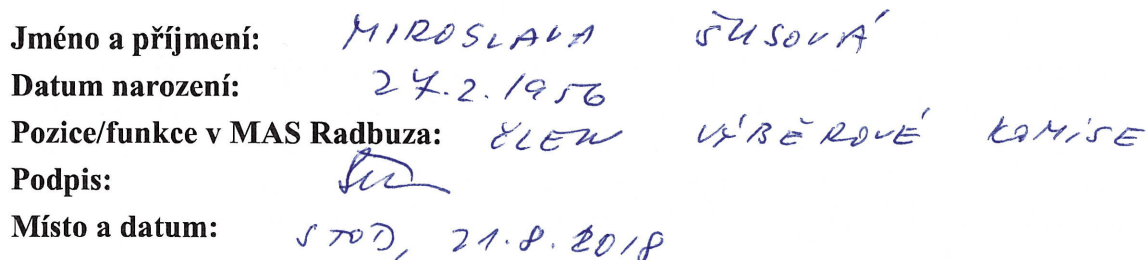 Jméno a příjmení: MIROSLAVA ŠUSOVÁ
Datum narození: 27.2.1956
Pozice/funkce v MAS Radbuza: ČLEN VÝBĚROVÉ KOMISE
Podpis:
Místo a datum: STOD, 21.8.2018